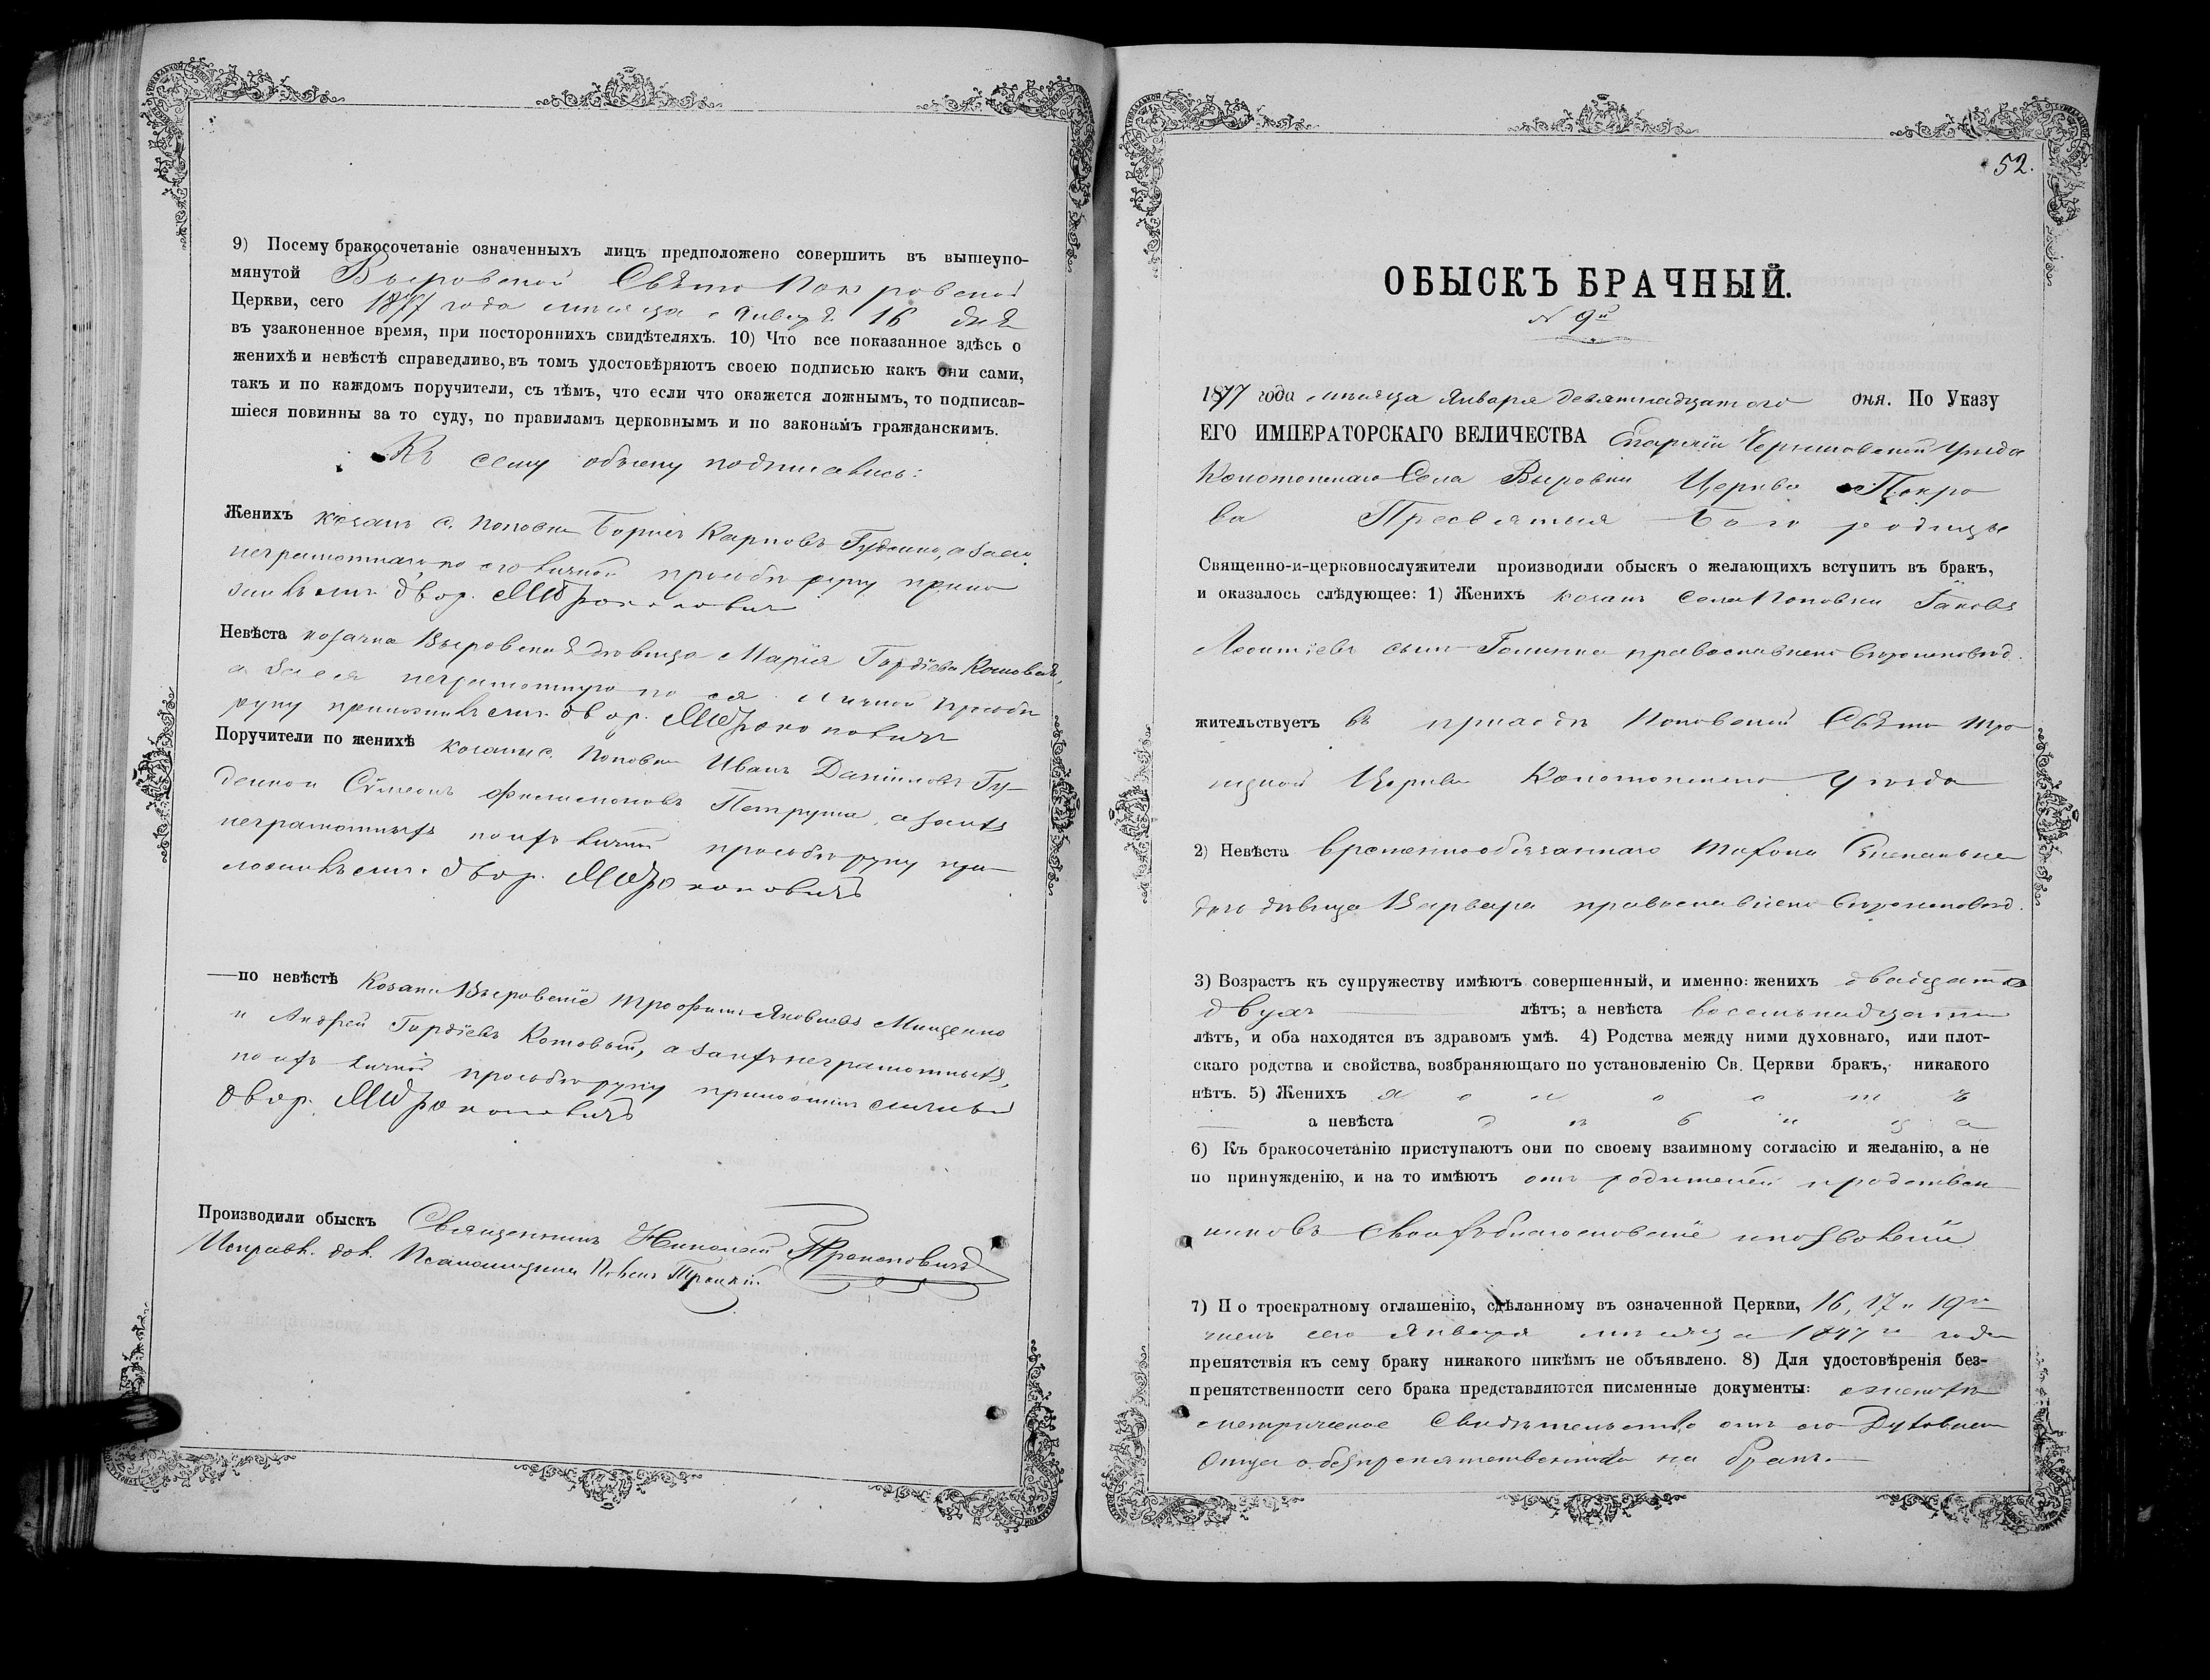 9) Посему бракосочетаніе означенныхъ лицъ предположено совершить въ вышеупо-
мянутой Выровской Свято Покровской
Церкви, сего 1877 года месяца Января 16 дня
въ узаконенное время, при постороннихъ свидѣтеляхъ. 10) Что все показанное здѣсь о
женихѣ и невѣстѣ справедливо, въ томъ удостовѣряютъ своею подписью какъ они сами,
такъ и по каждомъ поручители, съ тѣмъ, что если что окажется ложнымъ, то подписав-
шіеся повинны за то суду, по правиламъ церковнымъ и по законамъ гражданскимъ.
Къ сему обыску подписались:
Женихъ козакъ с. Поповки Карповъ Гуденко, а за его
неграмотнаго по его личной просьбѣ руку прило
жилъ двор.
Невѣста козачка Выровская дѣвица Марія Гордіева Котовая,
а за нея неграмотную по ея личной просьбѣ
руку приложилъ двор.
Поручители по женихѣ козаки с. Поповки Иванъ Даніиловъ Гу-
денко и Сѵмеонъ Филимоновъ Петруша, а за ихъ
неграмотныхъ по ихъ личной просьбѣ руку при
ложилъ двор.
—по невѣстѣ Козаки Выровскіе Трофимъ Яковлевъ Мищенко
и Андрей Гордіевъ Котовый, а за ихъ неграмотныхъ,
по ихъ личной просьбѣ руку приложилъ
двор.
Производили обыскъ Священникъ Николай
Исправл. дол. Псаломщика Павелъ Троцкій
52.
ОБЫСКЪ БРАЧНЫЙ.
N 9й
1877 года месяца Января девятнадцатого дня. По Указу
ЕГО ИМПЕРАТОРСКАГО ВЕЛИЧЕСТВА Епархіи Черниговской Уезда
Конотопскаго Села Выровки Церкви Покро
ва Пресвятыя Богородицы
Священно-и-церковнослужители производили обыскъ о желающихъ вступить въ бракъ,
и оказалось слѣдующее: 1) Женихъ козакъ села Поповки Іаковъ
Леонтіевъ сынъ православнаго вѣроисповѣд.
жительствуетъ въ приходѣ Поповской Свято Тро
ицкой Церкви Конотопскаго Уезда
2) Невѣста временнообязаннаго
дочь дѣвица Варвара православнаго вѣроисповѣд.
3) Возрастъ къ супружеству имѣютъ совершенный, и именно: женихъ двадцати
двухъ лѣтъ; а невѣста восемьнадцати
лѣтъ, и оба находятся въ здравомъ умѣ. 4) Родства между ними духовнаго, или плот-
скаго родства и свойства, возбраняющаго по установленію Св. Церкви бракъ, никакого
нѣтъ. 5) Женихъ холостъ
а невѣста дѣвица
6) Къ бракосочетанію приступаютъ они по своему взаимному согласію и желанію, а не
по принужденію, и на то имѣютъ отъ родителей и родствен
никовъ своихъ благословеніе и позволеніе
7) По троекратному оглашенію, сдѣланному въ означенной Церкви, 16, 17 и 19го
чиселъ сего Января месяца 1877го года
препятствія къ сему браку никакого никѣмъ не объявлено. 8) Для удостовѣренія без-
препятственности сего брака представляются писменные документы: о женихѣ
метрическое свидѣтельство отъ его Духовнаго
Отца о безпрепятственности на бракъ.